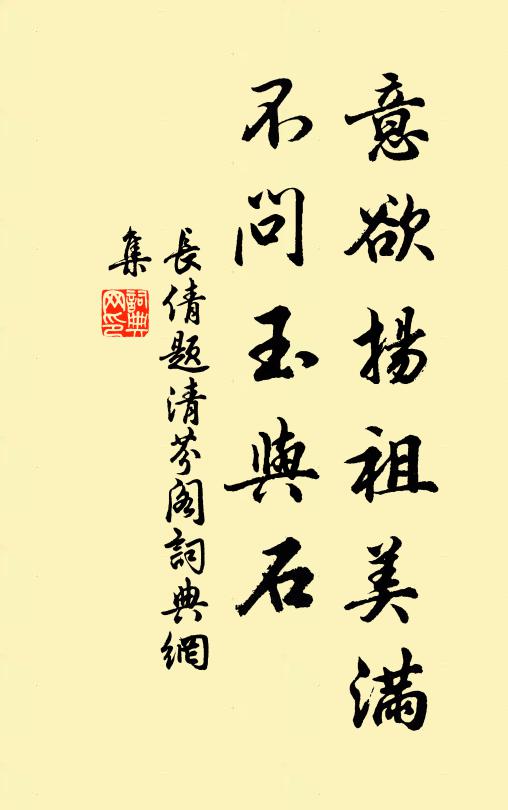 意欲揚祖美滿
不問玉與石
長倩題清芬閣詞典網
集
詞典
网印